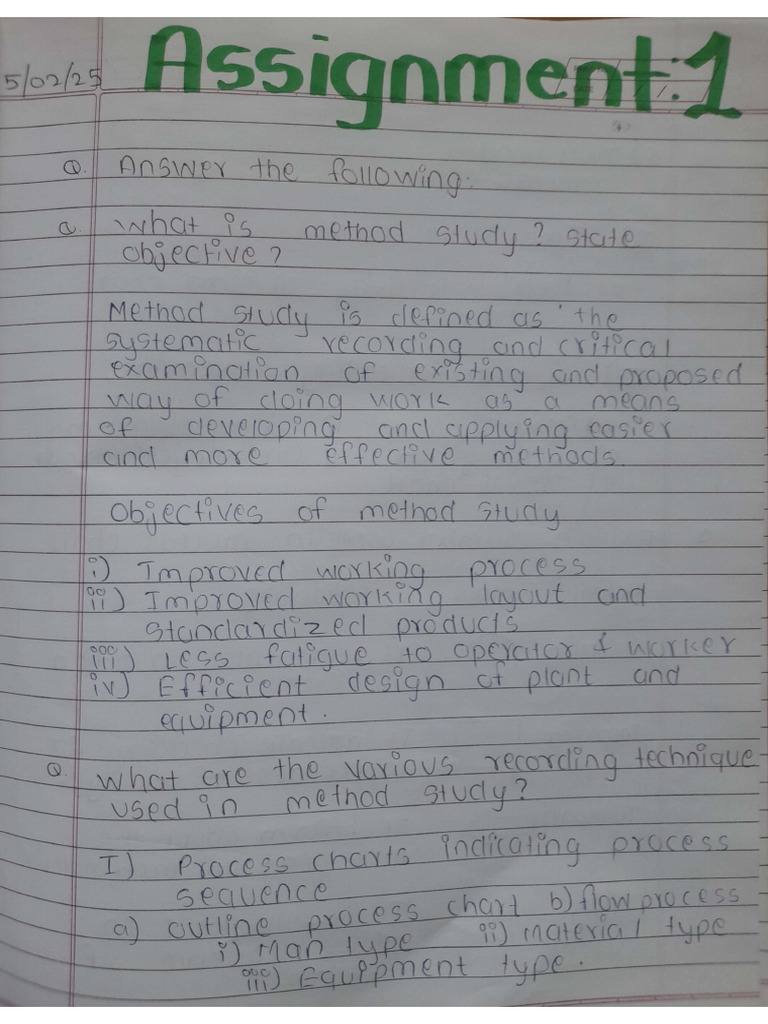 5/02/25
Assignment:1
Q. Answer the following.
a. What is method study? State
objective?
Method study is defined as the
systematic recording and critical
examination of existing and proposed
way of doing work as a means
of developing and applying easier
and more effective methods.
Objectives of method study
i) Improved working process
ii) Improved working layout and
standardized products
iii) Less fatigue to operator & worker
iv) Efficient design of plant and
equipment.
Q. What are the various recording technique
used in method study?
I) Process charts indicating process
sequence
a) outline process chart b) flow process
i) Man type ii) material type
iii) Equippment type.